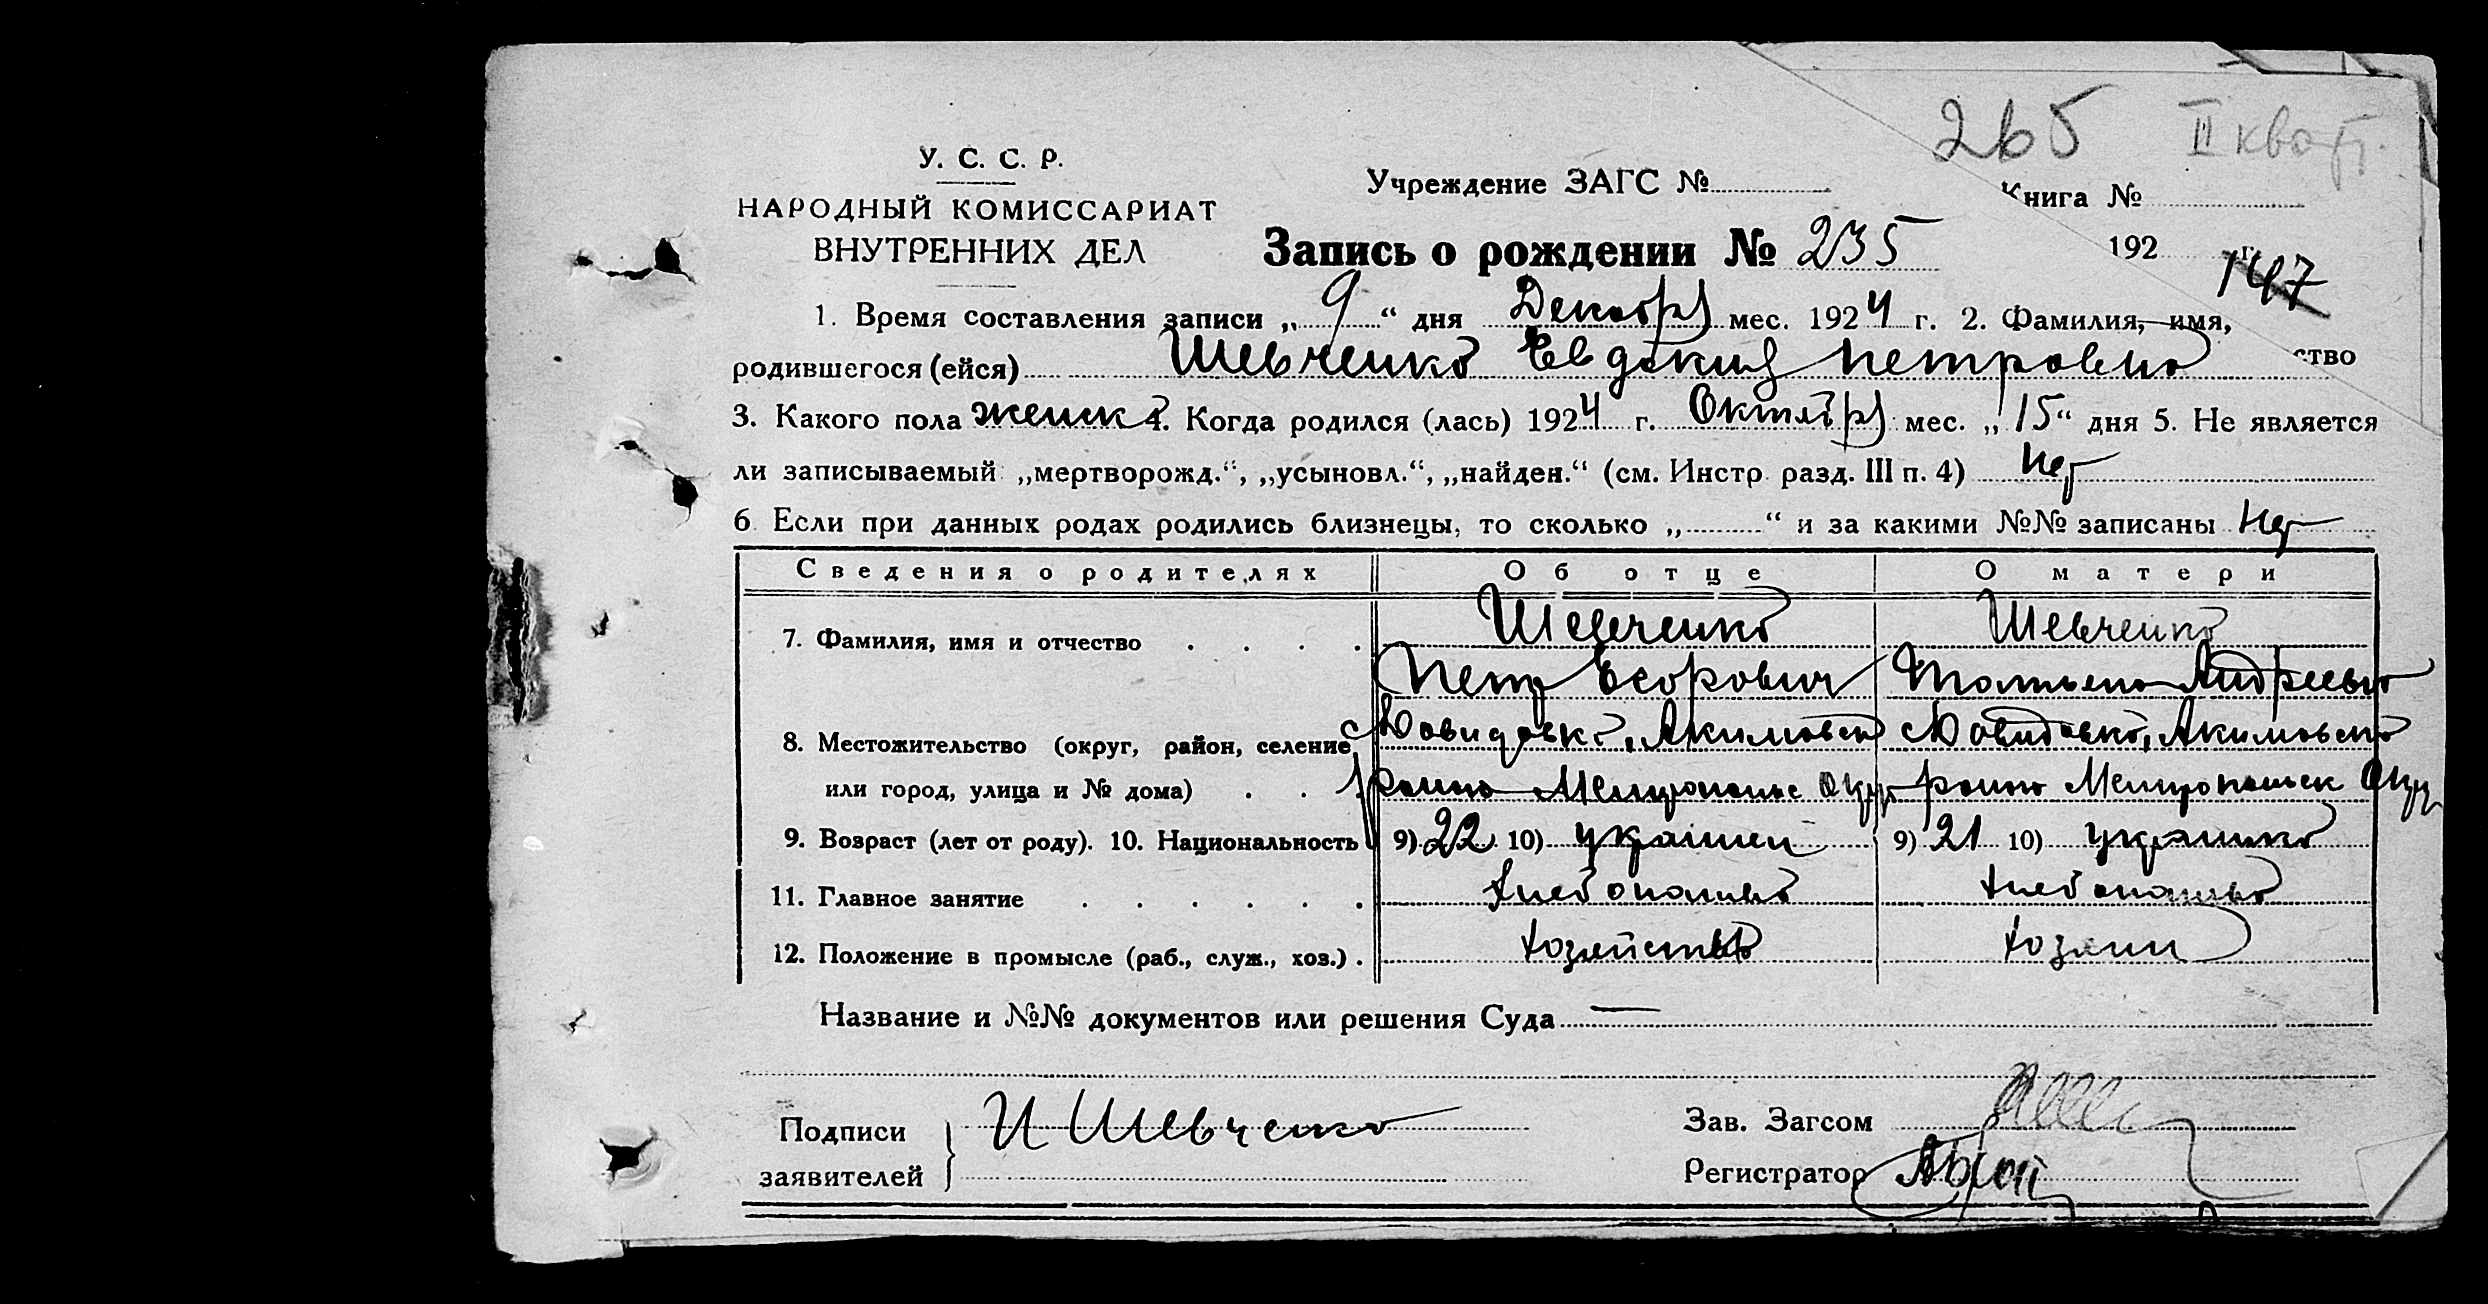 265 II кварт.
У. С. С. Р.
НАРОДНЫЙ КОМИССАРИАТ
ВНУТРЕННИХ ДЕЛ
Учреждение ЗАГС №
Книга №
Запись о рождении № 235
192 г.
147
1. Время составления записи „ 9 “ дня Декабря мес. 1924 г. 2. Фамилия, имя,
родившегося (ейся) Шевченко Евдокия Петровна ство
3. Какого пола женска 4. Когда родился (лась) 1924 г. Октября мес. „ 15 “ дня 5. Не является
ли записываемый „мертворожд.“, „усыновл.“, „найден.“ (см. Инстр. разд. III п. 4) нет
6. Если при данных родах родились близнецы, то сколько „ “ и за какими №№ записаны нет
Сведения о родителях Об отце О матери
7. Фамилия, имя и отчество Шевченко Шевченко
Петр Егорович Татьяна Андреевна
8. Местожительство (округ, район, селение, с Давидовка, Акимовск с Давидовка, Акимовско
или город, улица и № дома) района Мелитопольс Окру района Мелитопольск Окру
9. Возраст (лет от роду). 10. Национальность 9) 22 10) украинец 9) 21 10) украинка
11. Главное занятие хлебопашво хлебопашво
12. Положение в промысле (раб., служ., хоз.) хозяйство хозяин
Название и №№ документов или решения Суда —
Подписи заявителей И Шевченко
Зав. Загсом
Регистратор